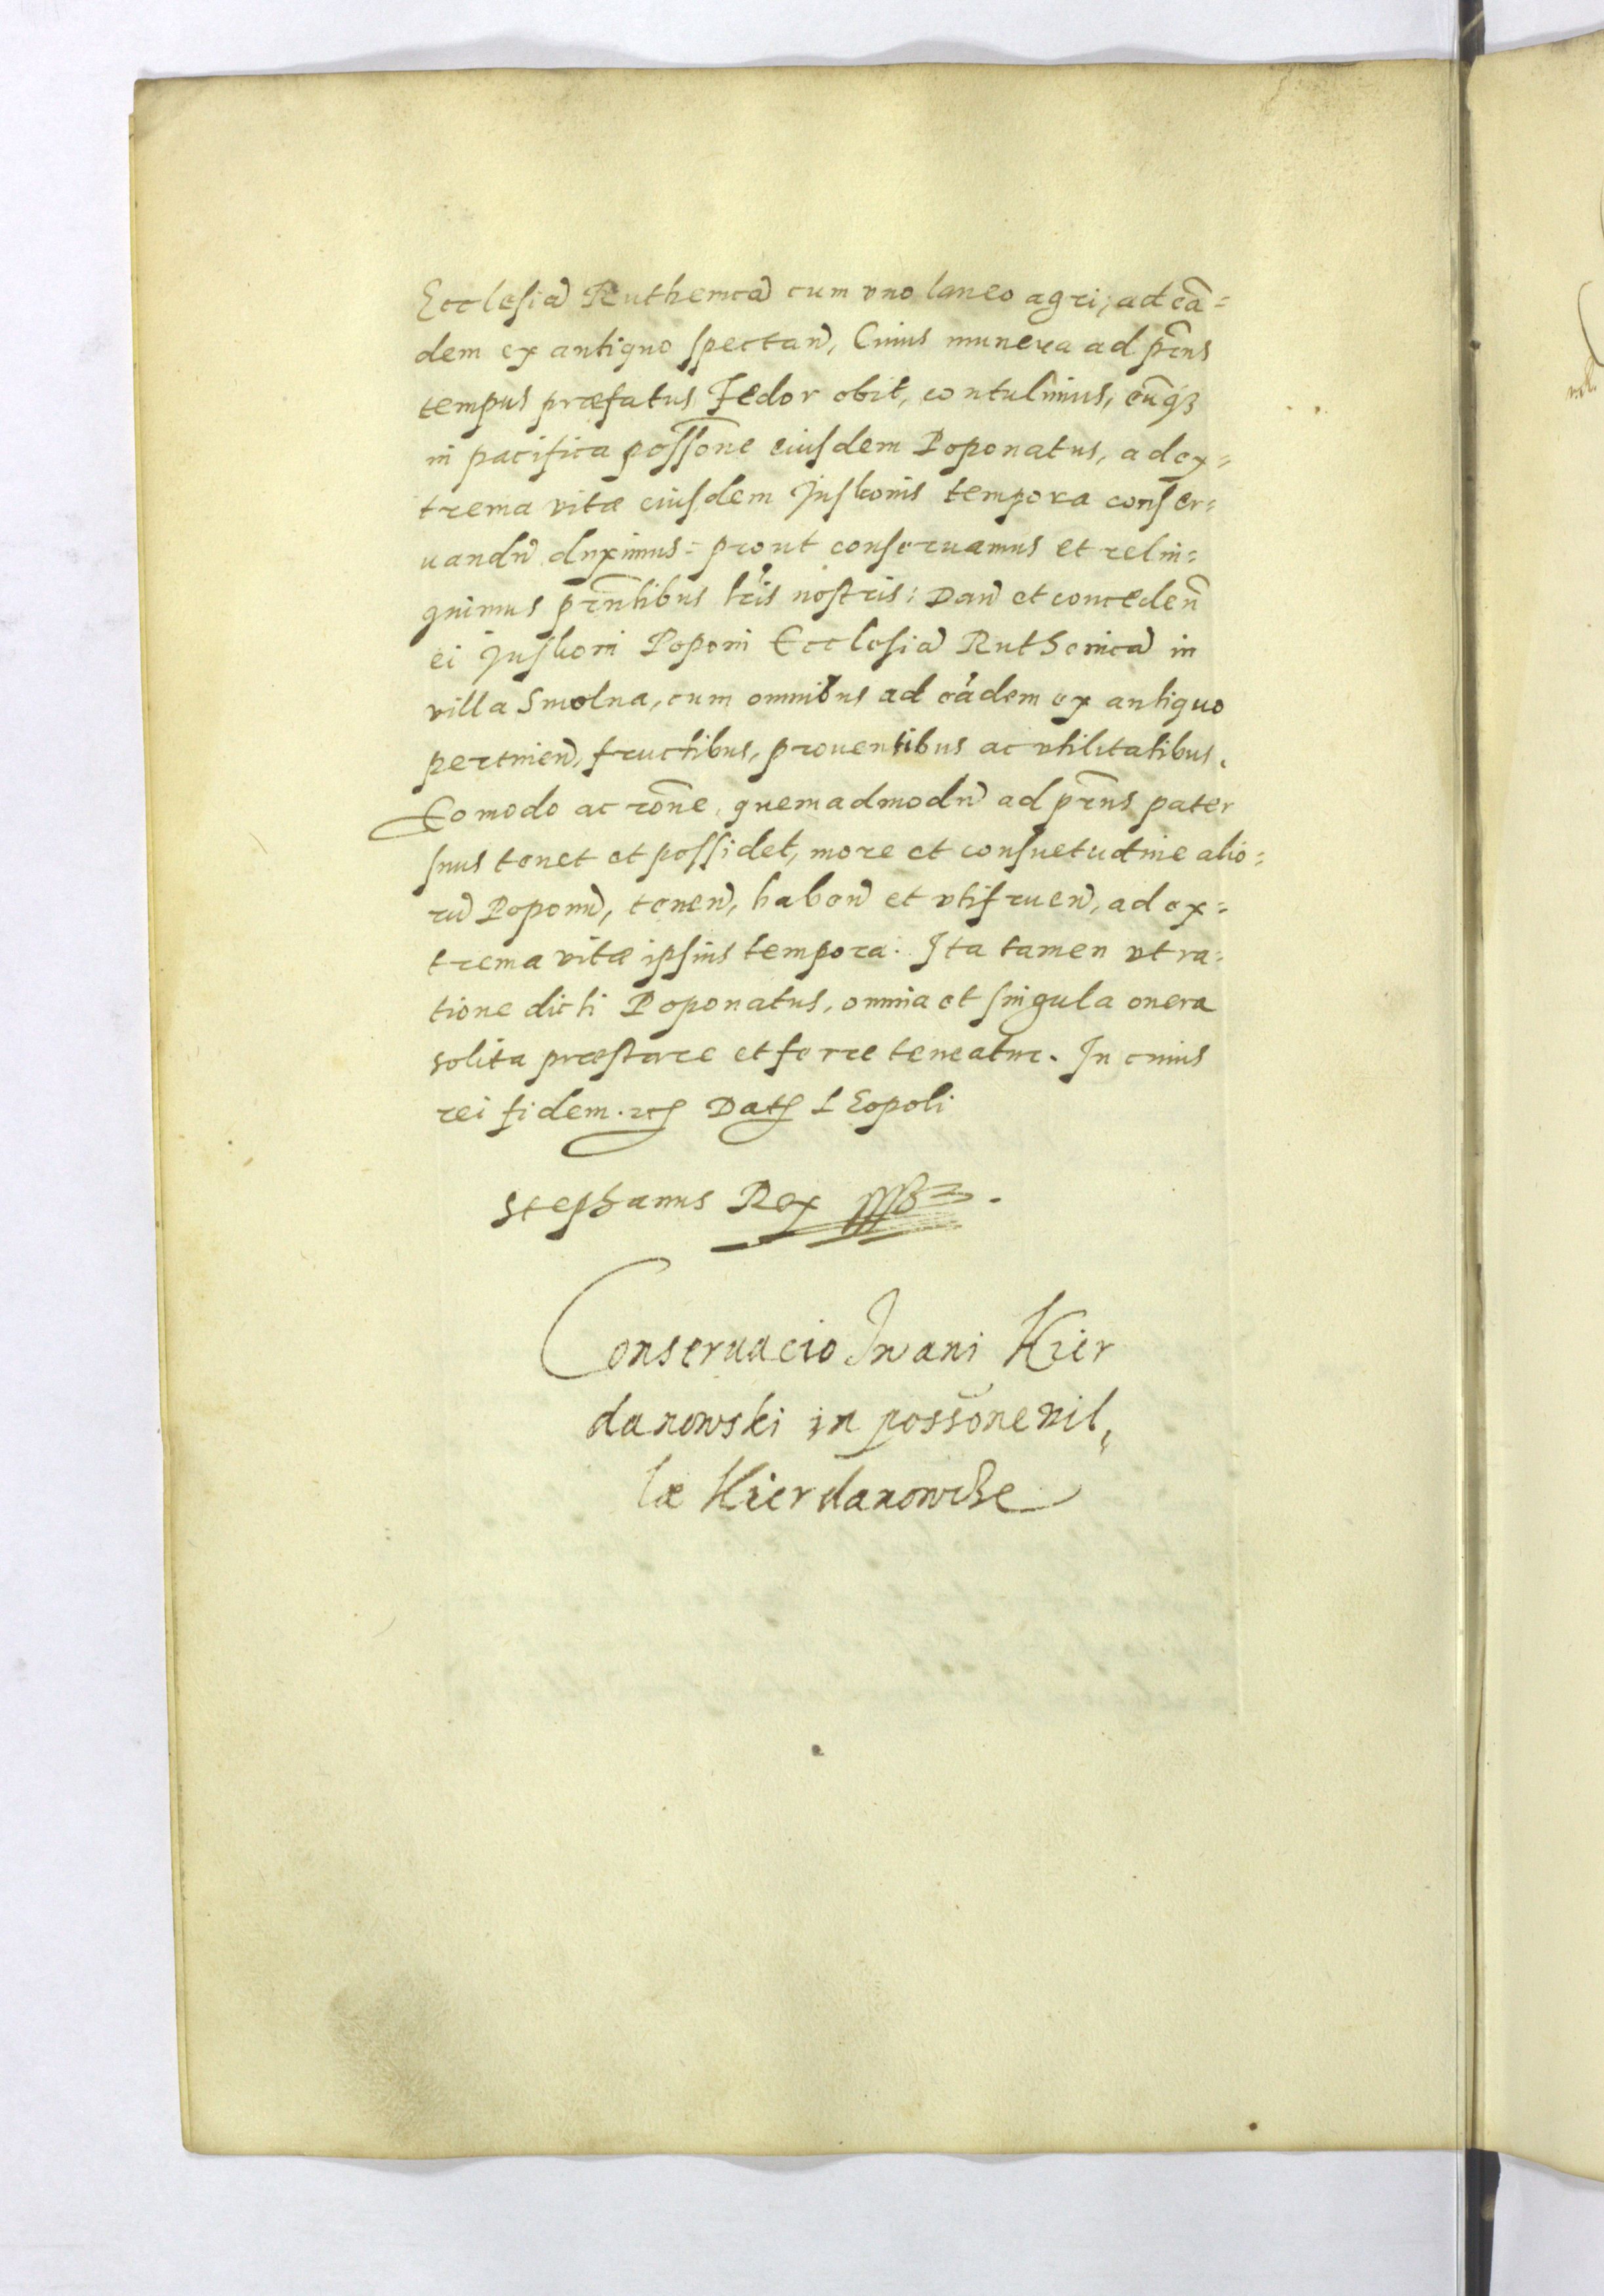 Ecclesiā Ruthenicā cum vno laneo agri, ad eā=
dem ex antiquo spectan̄, Cuius munera ad pr̄ns
tempus præfatus Fedor obit, contulimus, eūqȝ
in pacifica possōne eiusdem Poponatus, ad ex=
trema vitæ eiusdem Juskonis tempora conser=
uandū duximus= prout conseruamus et relin=
quimus pr̄ntibus lr̄is nostris: Dan̄ et conceden̄
ei Juskoni Poponi Ecclesiā Ruthenicā in
villa Smolna, cum omnibus ad eādem ex antiquo
pertinen̄, fructibus, prouentibus ac vtilitatibus.
Eo modo ac rōne, quemadmodū ad pr̄ns pater
suus tenet et possidet, more et consuetudine alio=
rū Poponū, tenen̄, haben̄ et vtifruen̄, ad ex=
trema vitæ ipsius tempora. Ita tamen vt ra=
tione dicti Poponatus, omnia et singula onera
solita præstare et ferre teneatur. In cuius
rei fidem. etc Dat̄ LEopoli
Stephanus Rex
Conseruacio Iwani Hier
danowski in possōne vil„
læ Hierdanowcze